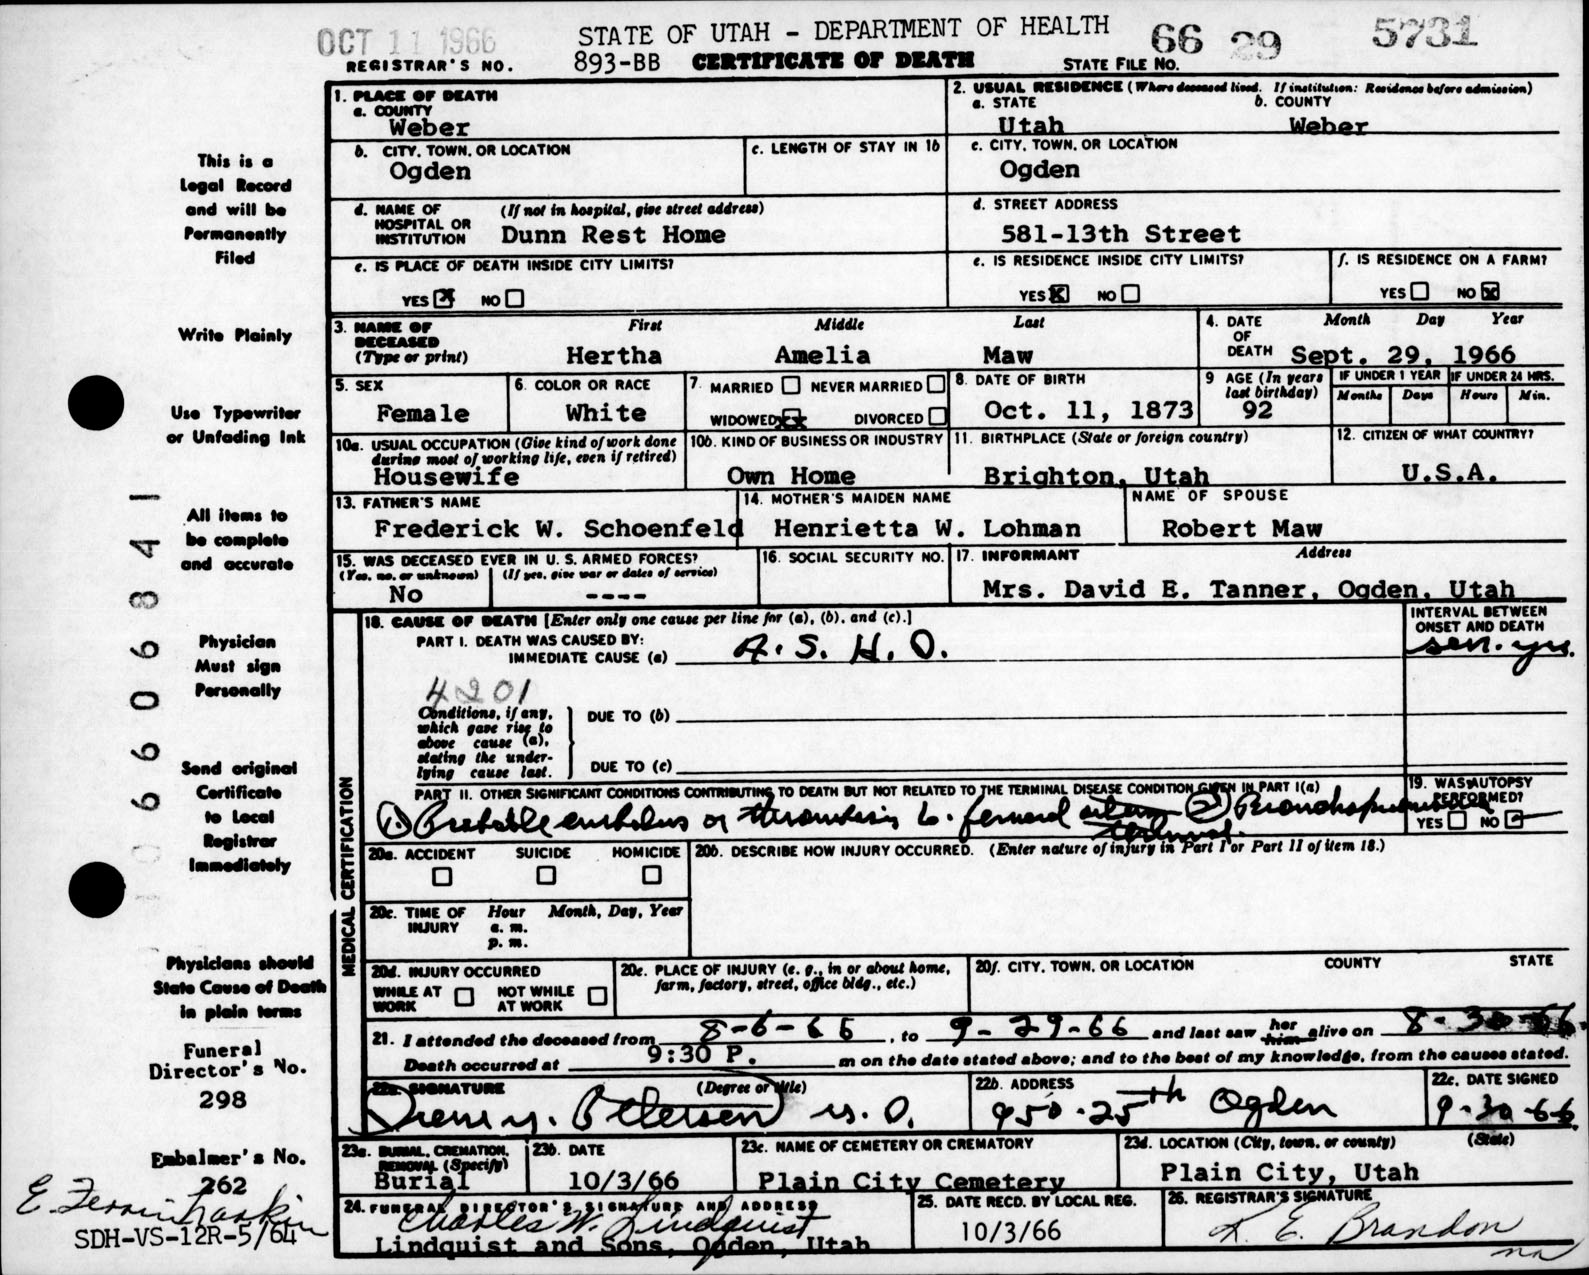 OCT 11 1966 STATE OF UTAH - DEPARTMENT OF HEALTH 66 29 5731
REGISTRAR'S NO. 893-BB CERTIFICATE OF DEATH STATE FILE NO.
This is a
Legal Record
and will be
Permanently
Filed
Write Plainly
Use Typewriter
or Unfading Ink
All items to
be complete
and accurate
Physician
Must sign
Personally
Send original
Certificate
to Local
Registrar
Immediately
Physicians should
State Cause of Death
in plain terms
Funeral
Director's No.
298
Embalmer's No.
262
E.
SDH-VS-12R-5/64
06606841
1. PLACE OF DEATH
a. COUNTY
Weber
2. USUAL RESIDENCE (Where deceased lived. If institution: Residence before admission)
a. STATE b. COUNTY
Utah Weber
b. CITY, TOWN, OR LOCATION
Ogden
c. LENGTH OF STAY IN 1b
c. CITY, TOWN, OR LOCATION
Ogden
d. NAME OF (If not in hospital, give street address)
HOSPITAL OR
INSTITUTION Dunn Rest Home
d. STREET ADDRESS
581-13th Street
e. IS PLACE OF DEATH INSIDE CITY LIMITS?
YES X NO
e. IS RESIDENCE INSIDE CITY LIMITS?
YES X NO
f. IS RESIDENCE ON A FARM?
YES NO X
3. NAME OF First Middle Last
DECEASED
(Type or print) Hertha Amelia Maw
4. DATE Month Day Year
OF
DEATH Sept. 29, 1966
5. SEX
Female
6. COLOR OR RACE
White
7. MARRIED NEVER MARRIED
WIDOWED XX DIVORCED
8. DATE OF BIRTH
Oct. 11, 1873
9 AGE (In years
last birthday)
92
IF UNDER 1 YEAR IF UNDER 24 HRS.
Months Days Hours Min.
10a. USUAL OCCUPATION (Give kind of work done
during most of working life, even if retired)
Housewife
10b. KIND OF BUSINESS OR INDUSTRY
Own Home
11. BIRTHPLACE (State or foreign country)
Brighton, Utah
12. CITIZEN OF WHAT COUNTRY?
U.S.A.
13. FATHER'S NAME
Frederick W. Schoenfeld
14. MOTHER'S MAIDEN NAME
Henrietta W. Lohman
NAME OF SPOUSE
Robert Maw
15. WAS DECEASED EVER IN U. S. ARMED FORCES?
(Yes, no, or unknown) (If yes, give war or dates of service)
No ----
16. SOCIAL SECURITY NO.
17. INFORMANT Address
Mrs. David E. Tanner, Ogden, Utah
MEDICAL CERTIFICATION
18. CAUSE OF DEATH [Enter only one cause per line for (a), (b), and (c).]
PART I. DEATH WAS CAUSED BY:
IMMEDIATE CAUSE (a) A. S. H. D.
INTERVAL BETWEEN
ONSET AND DEATH
sev. yrs.
4201
Conditions, if any,
which gave rise to
above cause (a),
stating the under-
lying cause last.
DUE TO (b)
DUE TO (c)
PART II. OTHER SIGNIFICANT CONDITIONS CONTRIBUTING TO DEATH BUT NOT RELATED TO THE TERMINAL DISEASE CONDITION GIVEN IN PART I(a)
(1.) Probable embolus or thrombosis L. femoral artery (2) Bronchopneumonia
terminal.
19. WAS AUTOPSY
PERFORMED?
YES NO
20a. ACCIDENT SUICIDE HOMICIDE
20b. DESCRIBE HOW INJURY OCCURRED. (Enter nature of injury in Part I or Part II of item 18.)
20c. TIME OF Hour Month, Day, Year
INJURY a. m.
p. m.
20d. INJURY OCCURRED
WHILE AT NOT WHILE
WORK AT WORK
20e. PLACE OF INJURY (e. g., in or about home,
farm, factory, street, office bldg., etc.)
20f. CITY, TOWN, OR LOCATION COUNTY STATE
21. I attended the deceased from 8-6-65, to 9-29-66 and last saw her him alive on 8-30-66
Death occurred at 9:30 P. m on the date stated above; and to the best of my knowledge, from the causes stated.
22a. SIGNATURE (Degree or title)
Petersen M. D.
22b. ADDRESS
950-25th Ogden
22c. DATE SIGNED
9-30-66
23a. BURIAL, CREMATION,
REMOVAL (Specify)
Burial
23b. DATE
10/3/66
23c. NAME OF CEMETERY OR CREMATORY
Plain City Cemetery
23d. LOCATION (City, town, or county) (State)
Plain City, Utah
24. FUNERAL DIRECTOR'S SIGNATURE AND ADDRESS
Charles W. Lindquist
Lindquist and Sons, Ogden, Utah
25. DATE RECD. BY LOCAL REG.
10/3/66
26. REGISTRAR'S SIGNATURE
K. E. Brandon